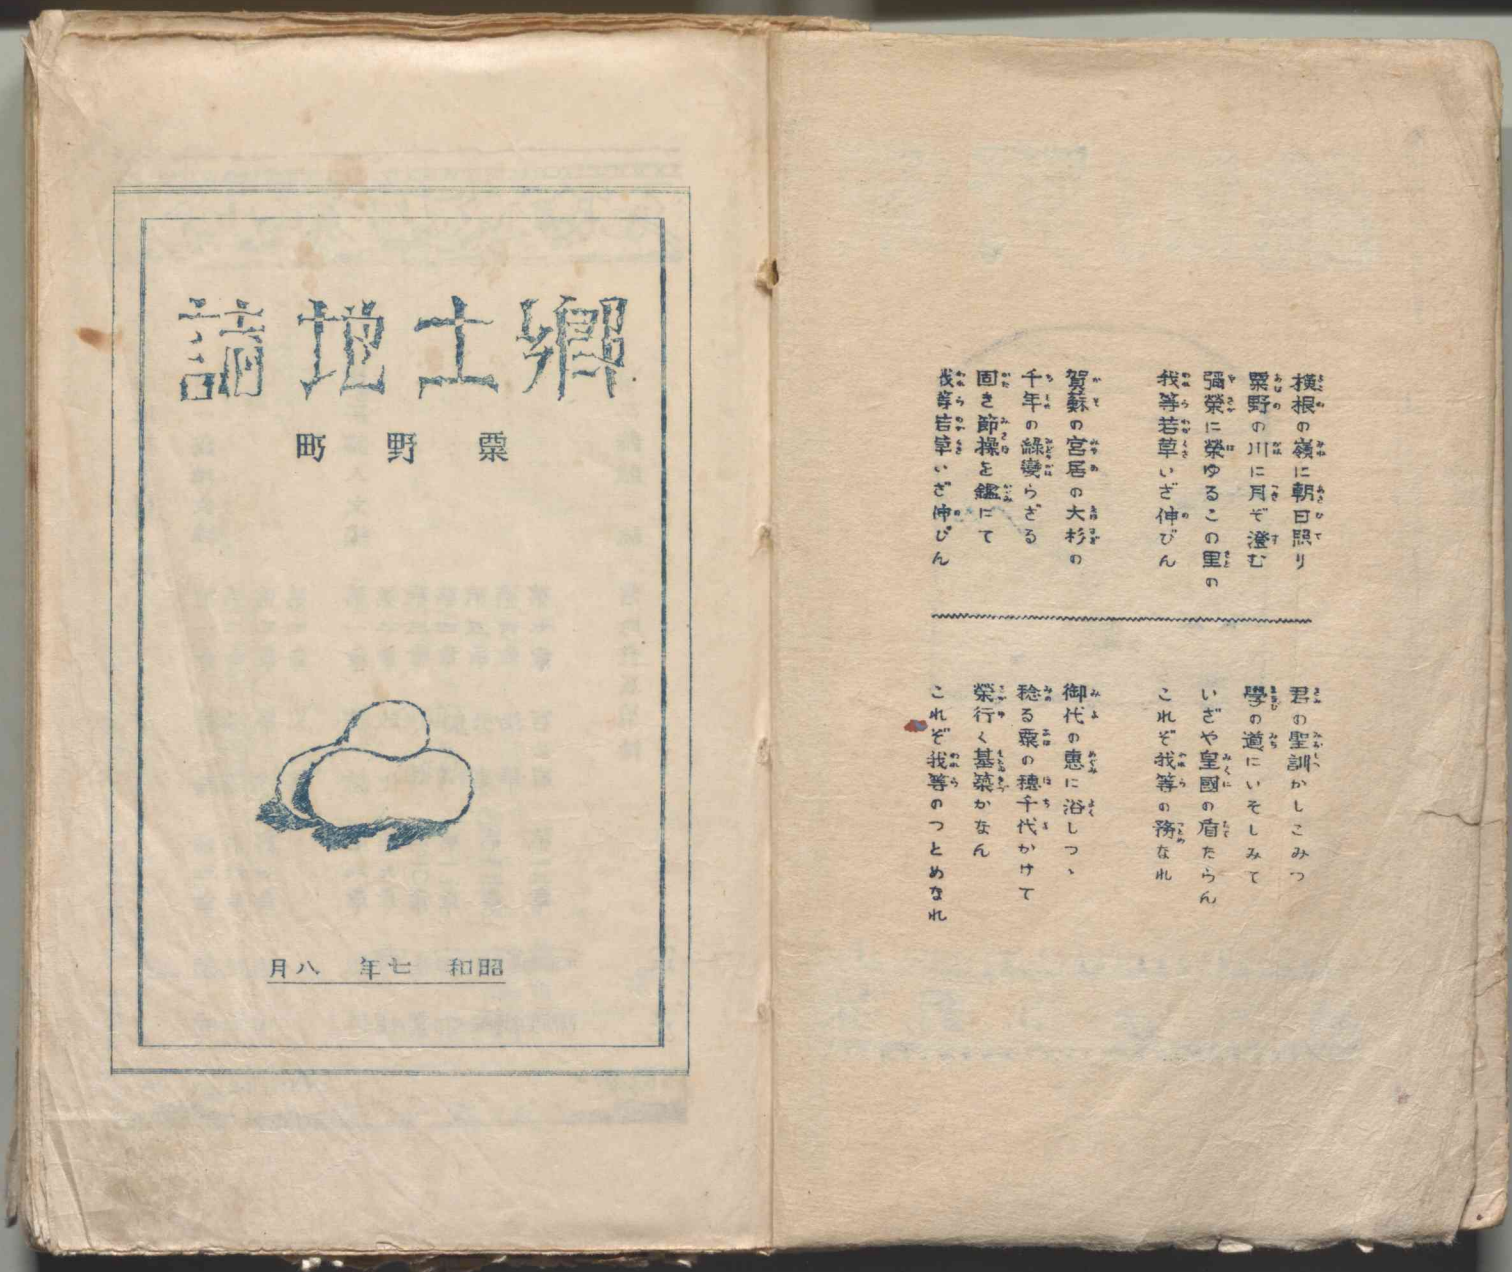 横根の嶺に朝日照り
粟野の川に月ぞ澄む
彌榮に榮ゆるこの里の
我等若草いざ伸びん
賀蘇の宮居の大杉の
千年の綠變らざる
固き節操を鑑にて
我等若草いざ伸びん
君の聖訓かしこみつ
學の道にいそしみて
いざや皇國の盾たらん
これぞ我等の務なれ
御代の惠に浴しつゝ
稔る粟の穗千代かけて
榮行く基築かなん
これぞ我等のつとめなれ
鄉土地誌
粟野町
昭和七年八月